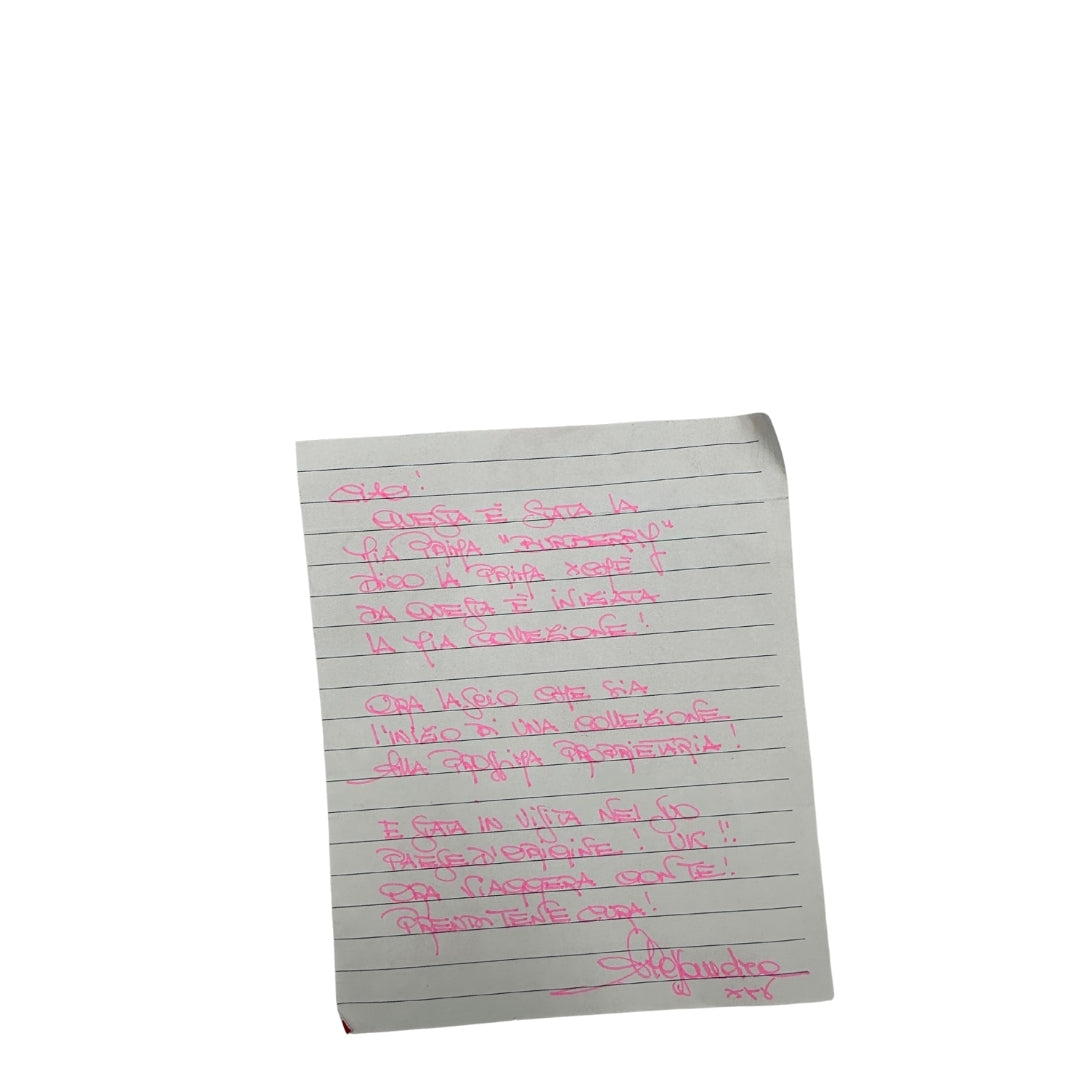 Ciao!
QUESTA È STATA LA
MIA PRIMA "BURBERRY"
DICO LA PRIMA XCHÈ
DA QUESTA È INIZIATA
LA MIA COLLEZIONE!
ORA LASCIO CHE SIA
L'INIZIO DI UNA COLLEZIONE
ALLA PROSSIMA PROPRIETARIA!
È STATA IN VISITA NEL SUO
PAESE D'ORIGINE! UK!!
ORA VIAGGERÀ CON TE!
PRENDITENE CURA!
Alejandro